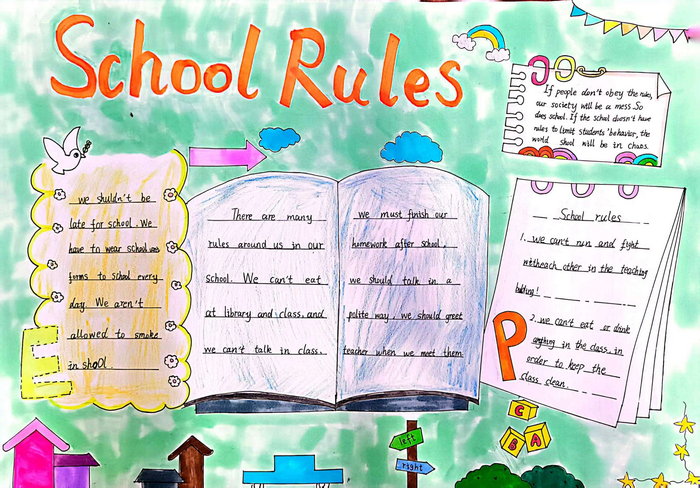 School Rules
If people don't obey the rules,
our society will be a mess. So
does school. If the school doesn't have
rules to limit students' behavior, the
world shool will be in chaos.
we shuldn't be
late for school. We
have to wear school uni-
forms to school every
day. We aren't
allowed to smoke
in shool.
E
There are many
rules around us in our
school. We can't eat
at library and class. and
we can't talk in class.
we must finish our
homework after school.
we should talk in a
polite way. we should greet
teacher when we meet them
School rules
1. we can't run and fight
with each other in the teaching
building!
2. we can't eat or drink
anything in the class, in
order to keep the
class clean.
P
C
B A
left
right